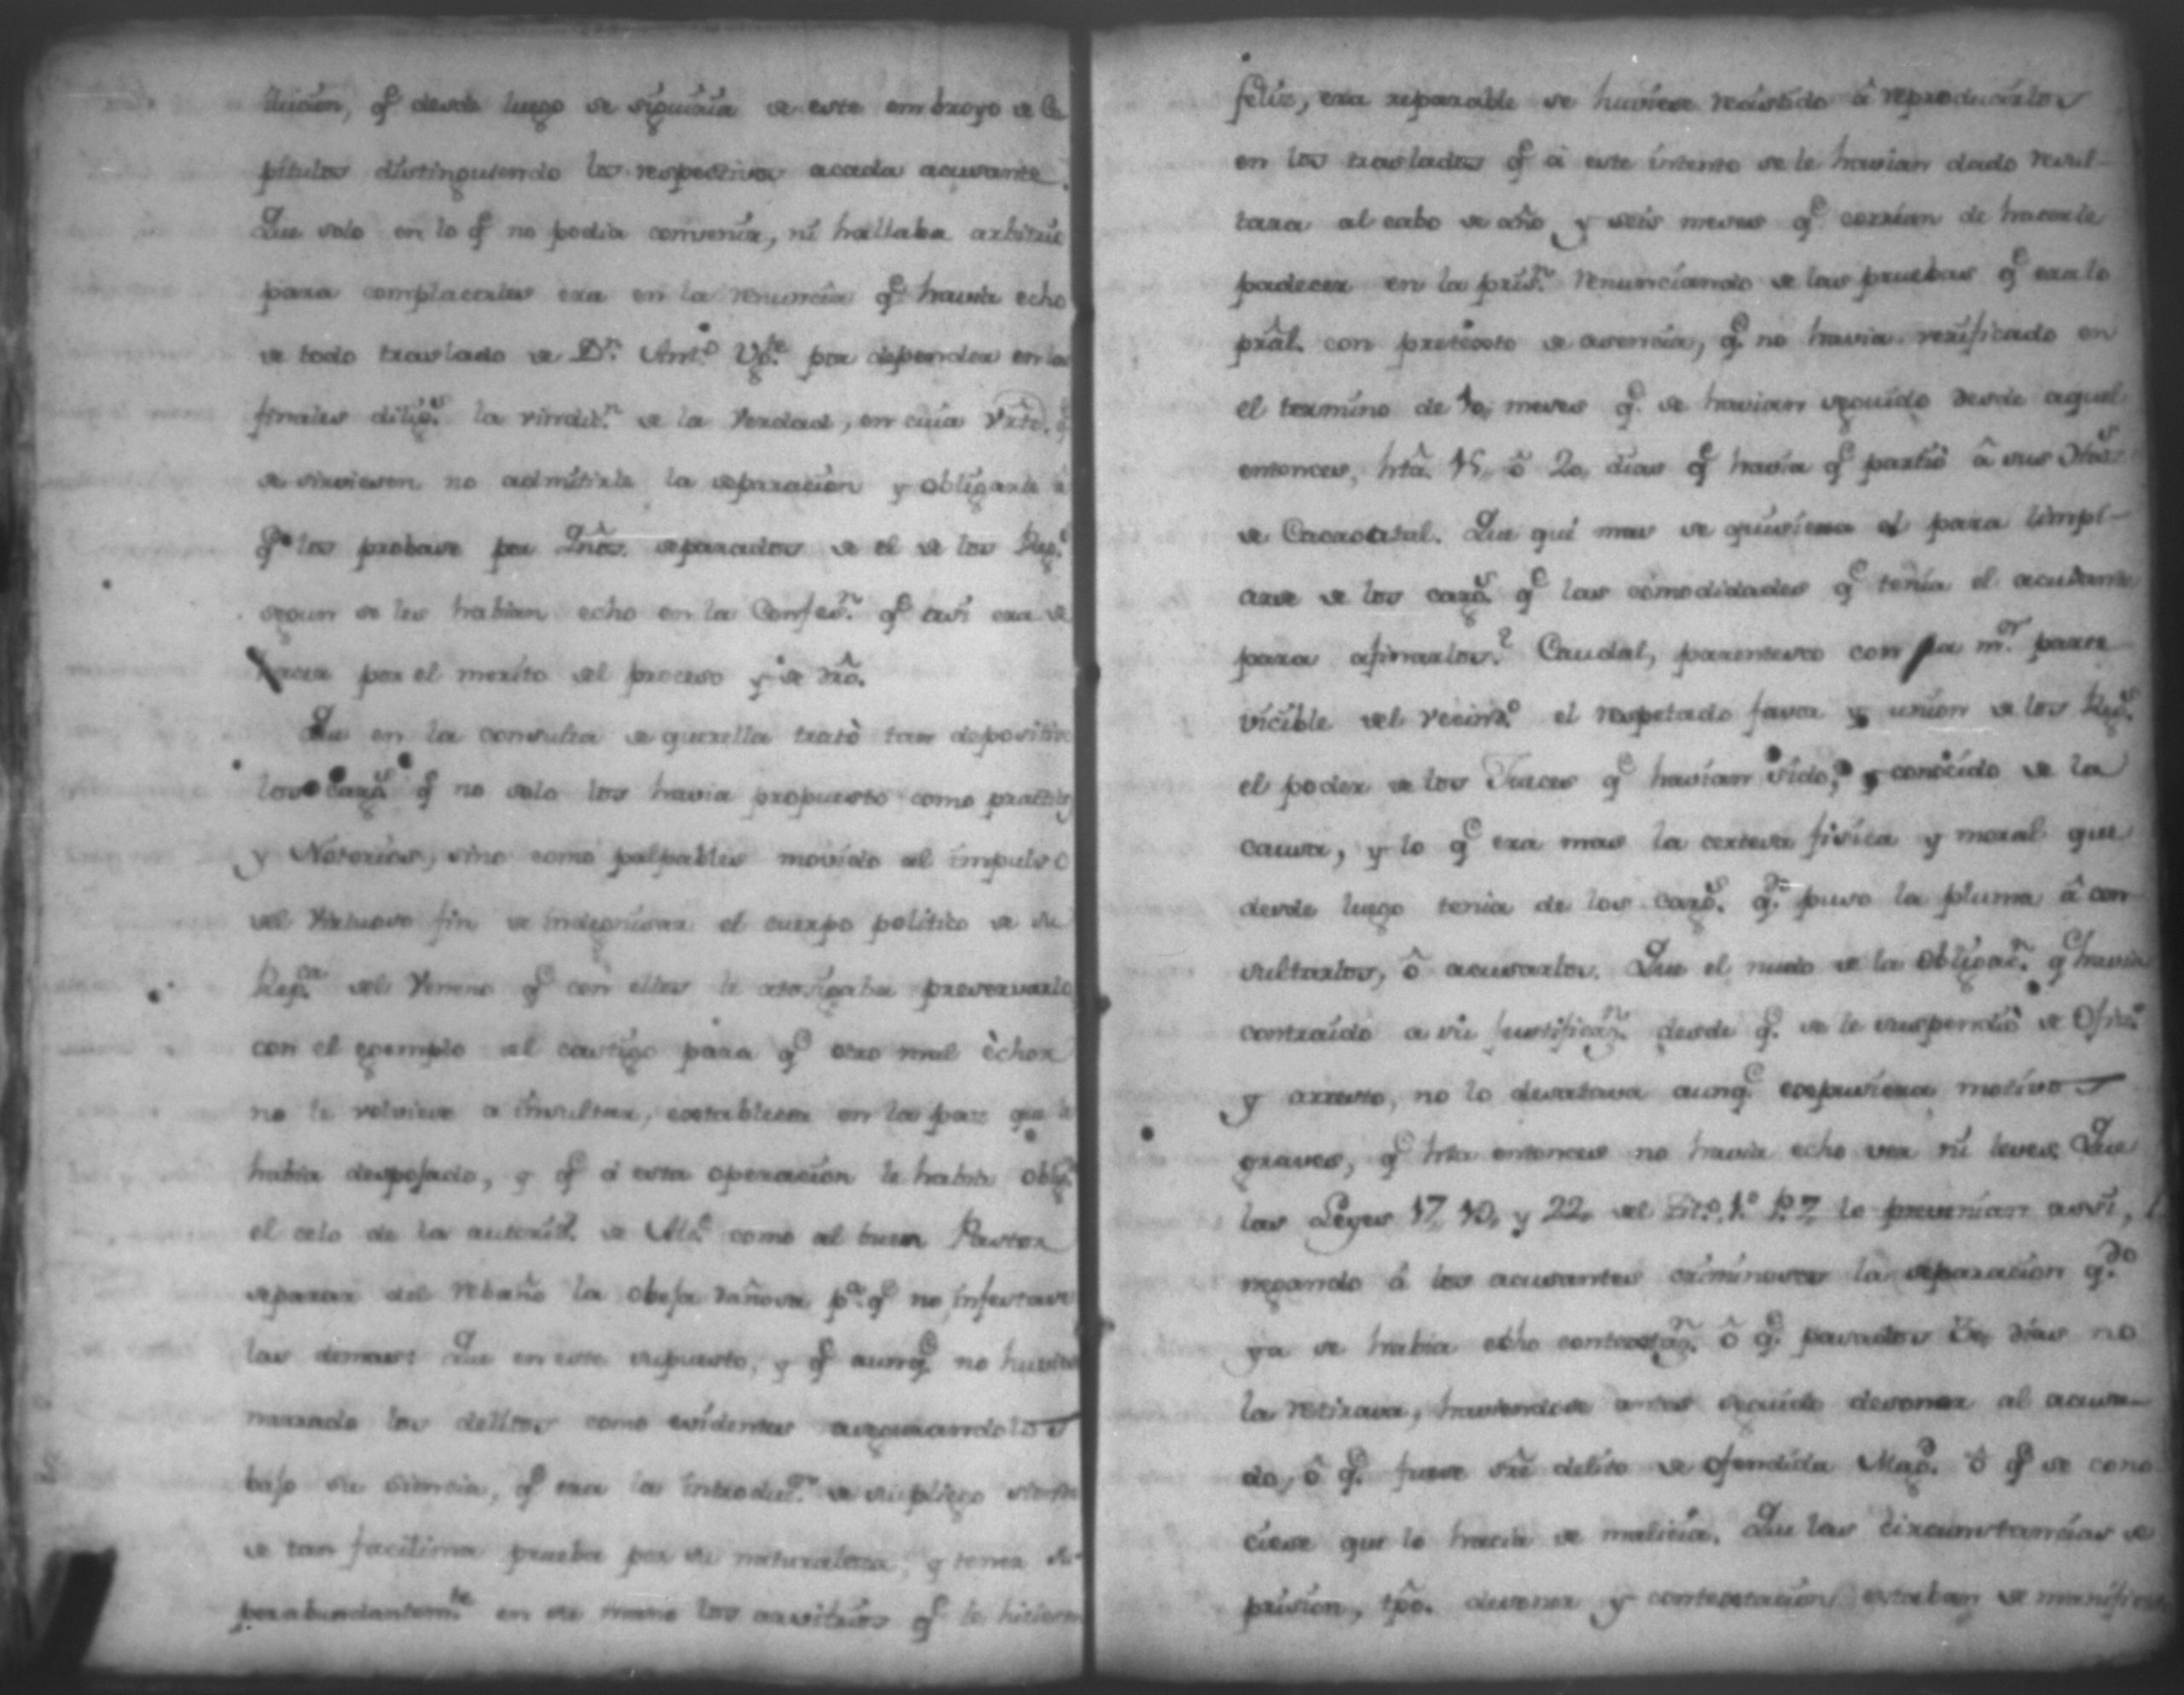 lucion, q.e desde luego se siguiria de este embroyo de Ca
pitulos distinguiendo los respectivos acada acusante.
Que solo en lo q.e no podia convenir, ni hallaba arbitrio
para complacerlos era en la renuncia q.e havia echo
de todo traslado de D.n Ant.o por depender en las
finales dilig.s la vindic.n de la Verdad, en cuia
se sirviesen no admitirle la separacion y obligarle à
q.e los probase por separados de el de los Reg.s
segun se les habian echo en la Confes.n q.e asi era de
hacer por el merito del proceso y de dro.
Que en la consulta de querella trató tan depositiv
los cargs q.e no solo los havia propuesto como
y Notorios, sino como palpables movido al impulso
del virtuoso fin de el cuerpo politico de su
Rep.ca del Veneno q.e con ellos le atosigaba preservarlo
con el egemplo del castigo para q.e otro mal èchor
no le volviese a insultar, establecer en la paz que le
habia despojado, y q.e á esta operacion le habia oblig.
el celo de la autorid. de Alc.e como al buen Pastor
separar del rebaño la obeja dañosa p.a q.e no infestase
las demas: Que en este supuesto, y q.e aunq.e no huvie
narrado los delitos como evidentes asegurandolos
bajo su ciencia, q.e era la introduc.n de su pliego siendo
de tan facilima prueba por su naturaleza, y tener su
perabundantem.te en su mano los arvitrios q.e le hicieron
feliz, era reparable se huviese resistido â reproducirlos
en los traslados q.e á este intento se le havian dado resul-
tara al cabo de año y seis meses q.e corrian de hacerle
padecer en la pris.n renunciando de las pruebas q.e era lo
prâl. con pretexto de ausencia, q.e no havia verificado en
el termino de 10, meses q.e se havian seguido desde aquel
entonces, htâ. 15, ô 20, dias q.e havia q.e partió â sus
de Cacaotatal. Que qué mas se quisiera él para limpi-
arse de los cargs. q.e las comodidades q.e tenia el acusante
para afinarlos? Caudal, parentesco con la m.or parte
vicible del vecind.o el respetado favor y union de los Reg.s
el poder de los Jueces q.e havian sido, y conocido de la
causa, y lo q.e era mas la certeza fisica y moral que
desde luego tenia de los cargs. q.do puso la pluma â con-
sultarlos, ô acusarlos. Que el nudo de la obligac.n q.e havia
contraido a su justificaz.n desde q.e se le suspendió de Ofic.o
y arresto, no lo desatava aunq.e expusiera motivos
graves, q.e htâ entonces no havia echo ver ni leves. Que
las Leyes 17, 19, y 22, del Tit.o 1.o P. 7, lo prevenian assi,
negando â los acusantes criminosos la separacion q.do
ya se habia echo contestaz.n ô q.e pasados 30, dias no
la retirava, haviendose antes seguido desonor al acusa-
do, ô q.e fuese sre delito de ofendida Mag.d ô q.e se cono
ciese que lo hacia de malicia. Que las circumstancias de
prision, tpô. desonor y contestacion estaban de manifiesto